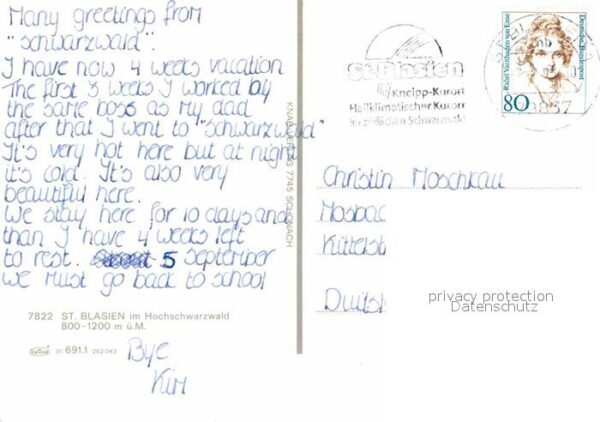 Many greetings from
"schwarzwald".
I have now 4 weeks vacation
The first 3 weeks I worked by
the same boss as my dad
after that I went to "schwarzwald"
It's very hot here but at night
it's cold. It's also very
beautiful here.
We stay here for 10 days and
than I have 4 weeks left
to rest. 5 september
we must go back to school
Bye
Kim
7822 ST. BLASIEN im Hochschwarzwald
800-1200 m ü.M.
21 691.1 262042
7745 SCHONACH
St. Blasien
Kneipp-Kurort
Heilklimatischer Kurort
im südlichen Schwarzwald
Rahel Varnhagen von Ense
Deutsche Bundespost
80
Christin Moschkau
Mosbac
Küttelsb
privacy protection
Datenschutz